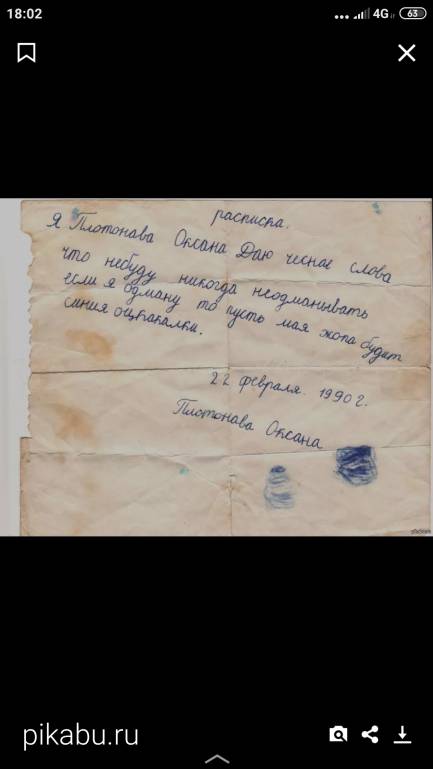 18:02
4G
63
расписка.
Я Плотонава Оксана Даю чесное слова
что небуду никогда неодманывать
если я одману то пусть мая жопа будит
синия
22 февраля. 1990 г.
Плотонава Оксана
pikabu.ru